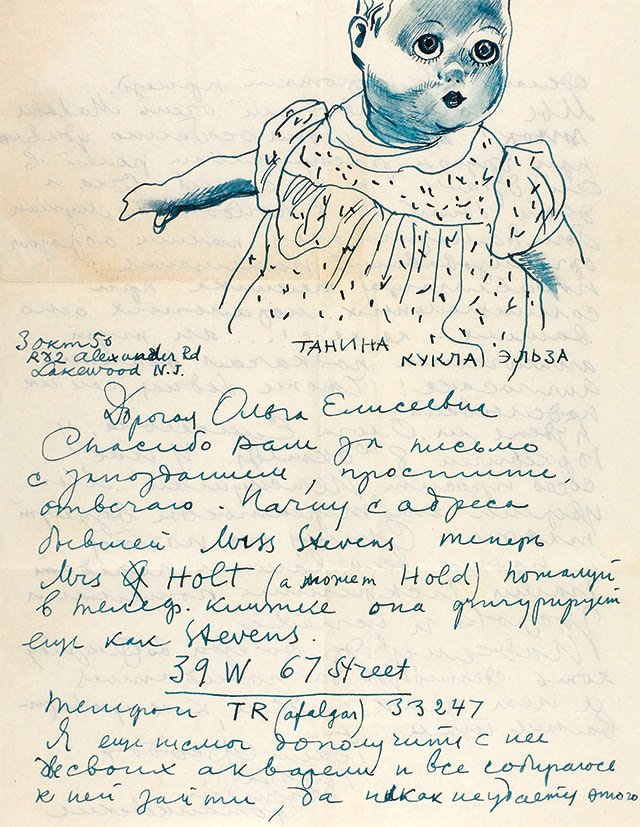 ТАНИНА КУКЛА ЭЛЬЗА
3 окт 50
R#2 Alexander Rd
Lakewood N.J.
Дорогая Ольга Елисеевна
Спасибо Вам за письмо
с запозданием, простите,
отвечаю. Начну с адреса
бывшей Miss Stevens теперь
Mrs HOLT (а может Hold) пожалуй
в телеф. книжке она фигурирует
еще как Stevens.
39 W 67 Street
Телефон TR (afalgar) 33247
Я еще не смог дополучить с нее
две своих акварели и все собираюсь
к ней зайти, да никак не удается этого